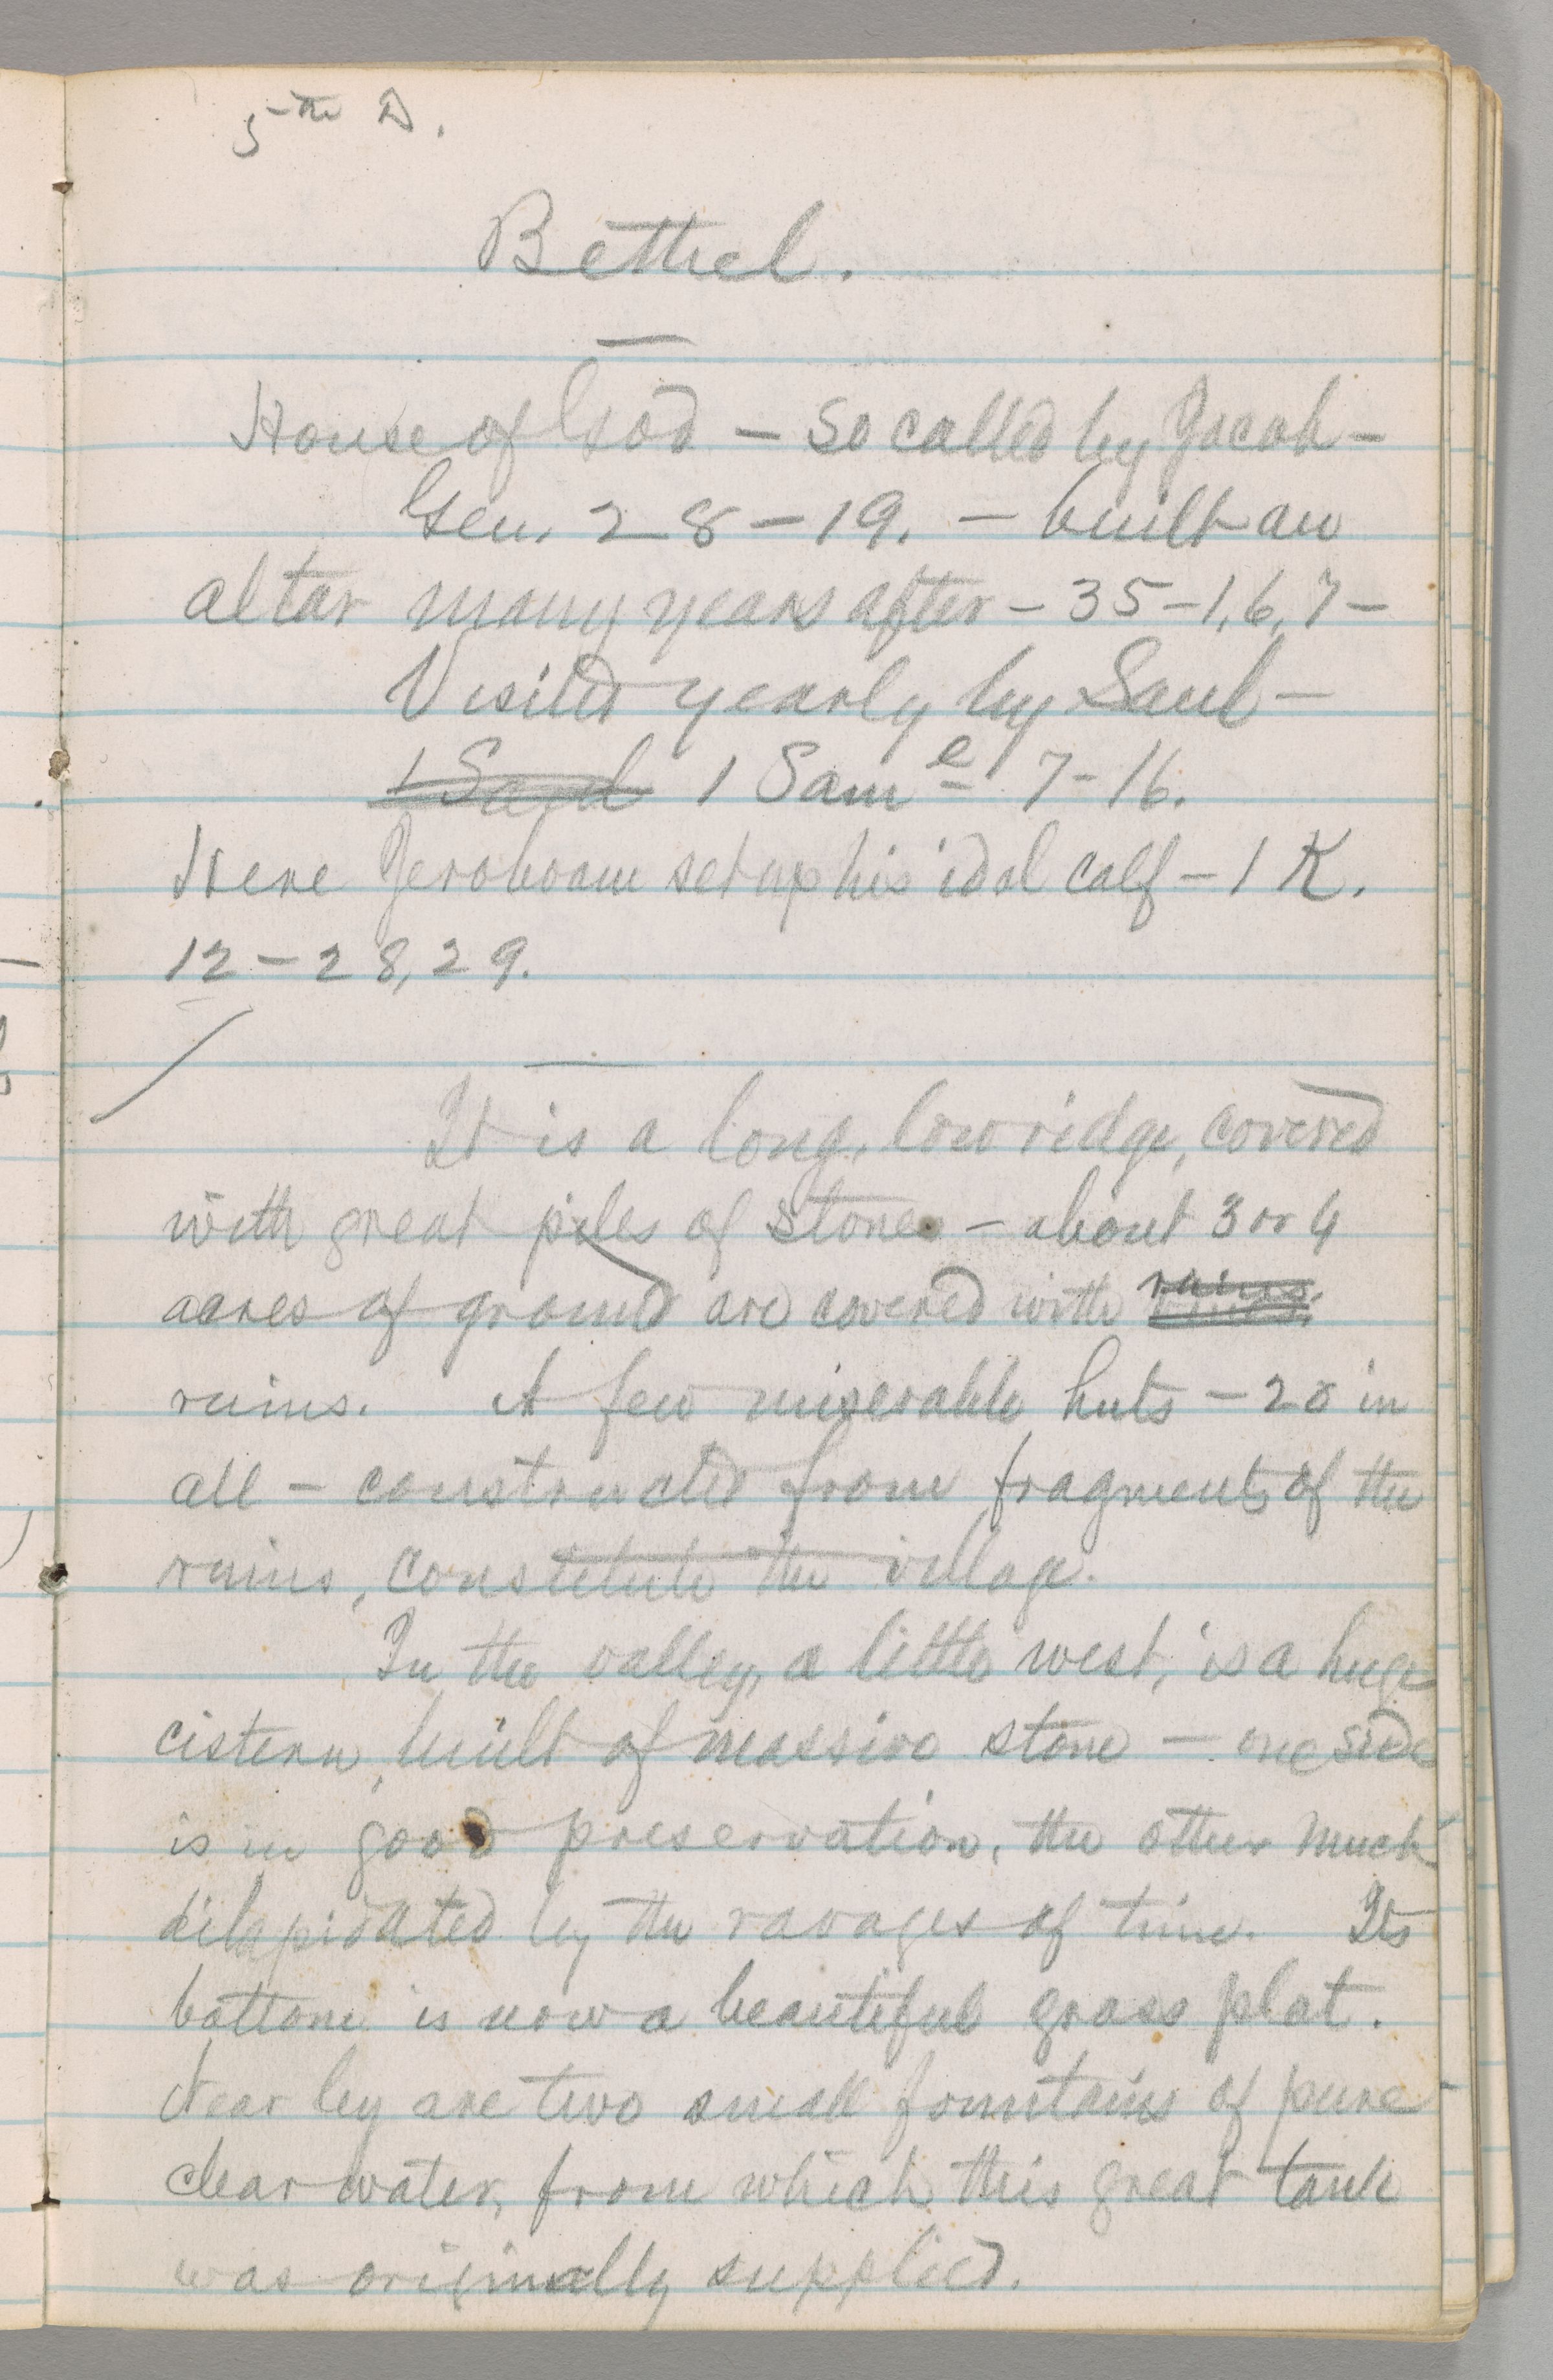 5th D.
Bethel.
House of God — So called by Jacob —
Gen. 28 – 19. — built an
altar many years after – 35 – 1, 6, 7 –
Visited yearly by Saul –
1 Saul 1 Same 7 – 16.
Here Jeroboam set up his idol calf – 1 K.
12 – 28, 29.
It is a long, low ridge, covered
with great piles of stones – about 3 or 4
acres of ground are covered with ruins.
ruins. A few miserable huts – 20 in
all – constructed from fragments of the
ruins, constitute the village.
In the valley, a little west, is a huge
cistern, built of massive stone — one side
is in good preservation, the other much
dilapidated by the ravages of time. Its
bottom is now a beautiful grass plat.
Near by are two small fountains of pure
clear water, from which this great tank
was originally supplied.